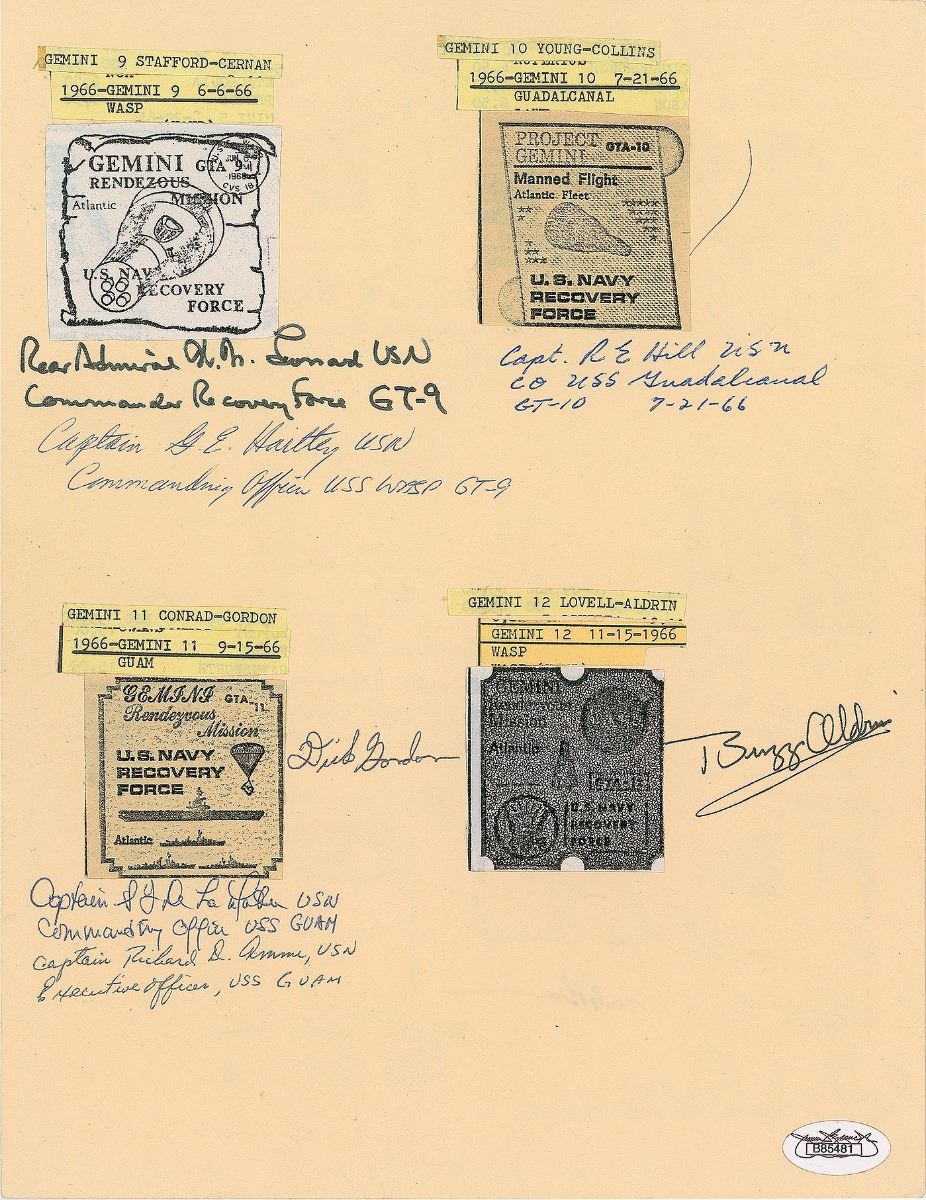 GEMINI 9 STAFFORD-CERNAN
1966-GEMINI 9 6-6-66
WASP
GEMINI GTA 9
RENDEZOUS
MISSION
Atlantic
U.S. NAVY
RECOVERY
FORCE
Rear Admiral W. M. Leonard USN
Commander Recovery Force GT-9
Captain G. E. Hartley USN
Commanding Officer USS WASP GT-9
GEMINI 10 YOUNG-COLLINS
1966-GEMINI 10 7-21-66
GUADALCANAL
PROJECT
GEMINI GTA-10
Manned Flight
Atlantic Fleet
U.S. NAVY
RECOVERY
FORCE
Capt. R E Hill USN
CO USS Guadalcanal
GT-10 7-21-66
GEMINI 11 CONRAD-GORDON
1966-GEMINI 11 9-15-66
GUAM
GEMINI GTA-11
Rendezvous
Mission
U.S. NAVY
RECOVERY
FORCE
Atlantic
Dick Gordon
Captain USN
Commanding Officer USS GUAM
Captain Richard D. Amme, USN
Executive Officer, USS GUAM
GEMINI 12 LOVELL-ALDRIN
GEMINI 12 11-15-1966
WASP
GEMINI
Rendezvous
Mission
Atlantic
GTA-12
U.S. NAVY
RECOVERY
FORCE
Buzz Aldrin
B85481